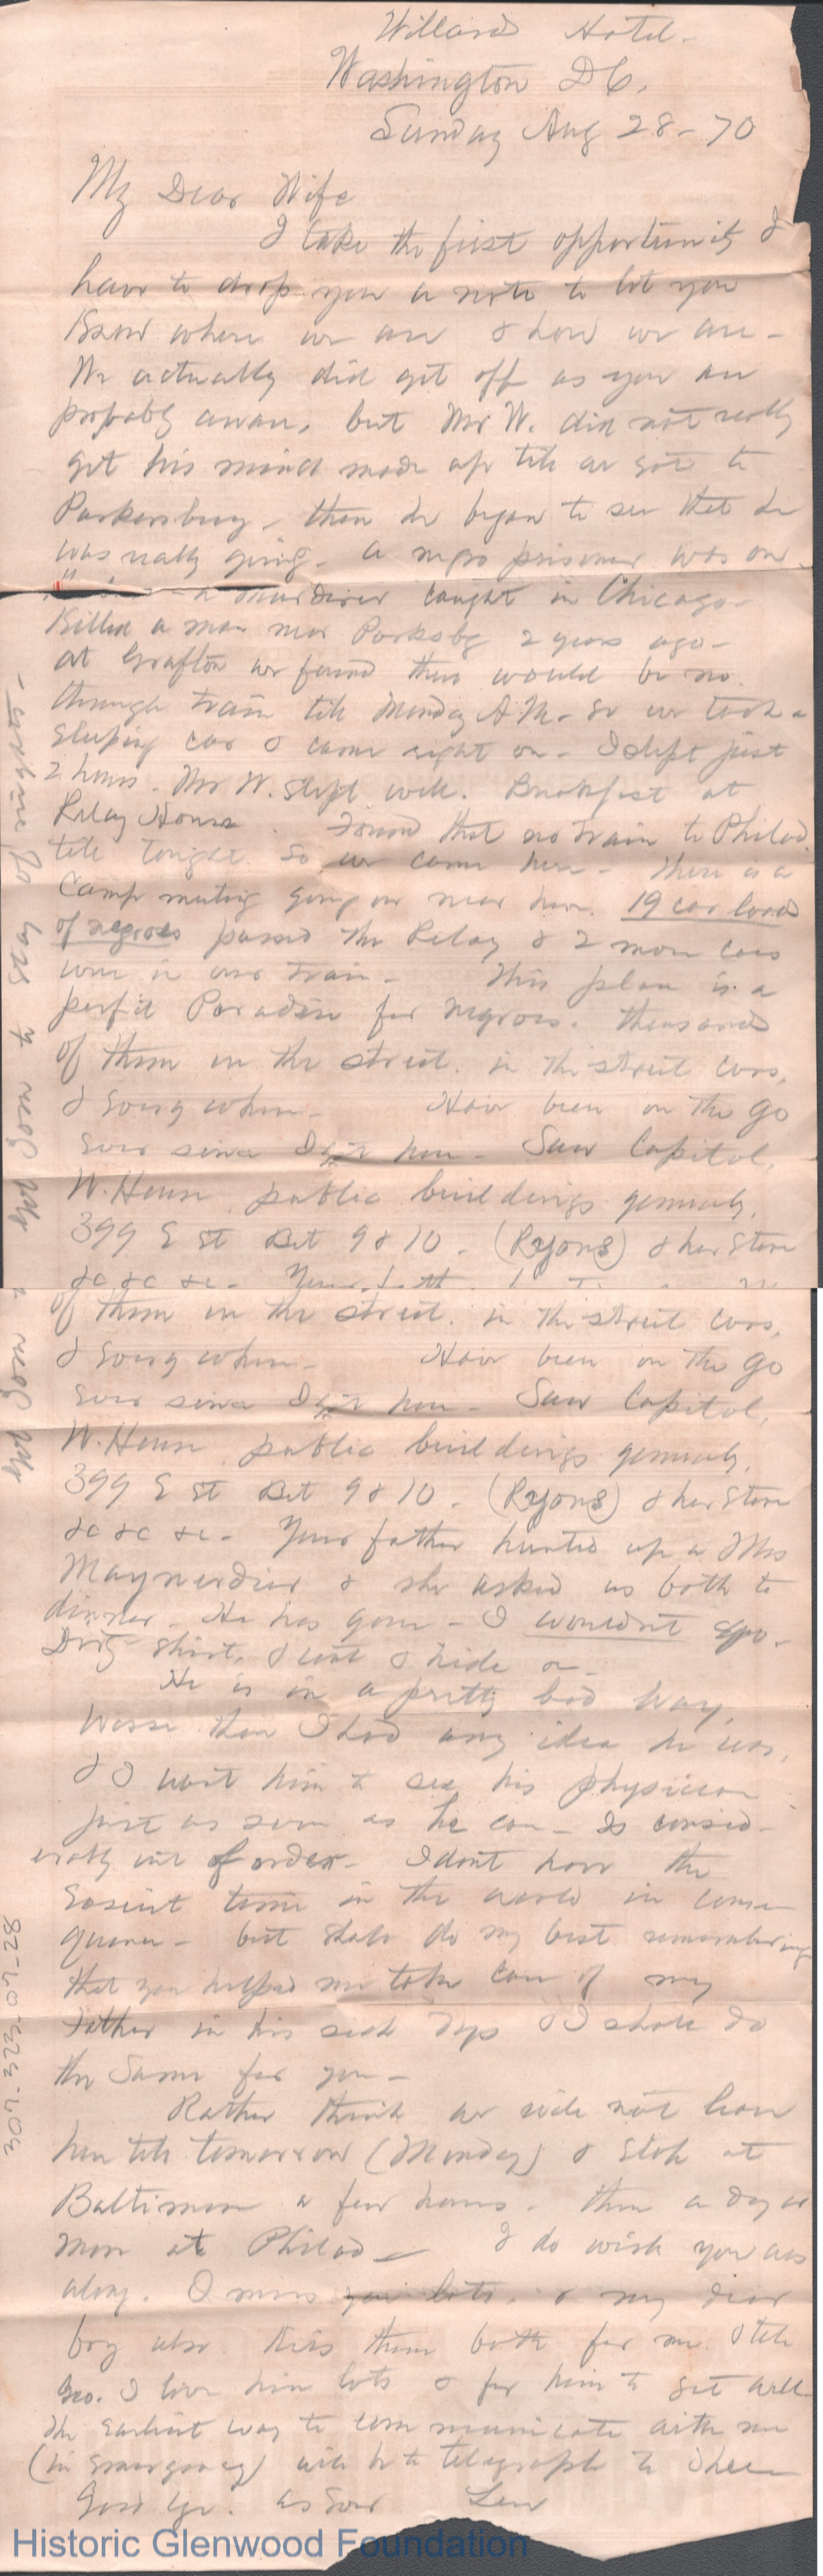 Willards Hotel-
Washington DC,
Sunday Aug 28-70
My Dear Wife
I take the first opportunity I
have to drop you a note to let you
Know where we are & how we are-
We actually did get off as you are
probably aware, but Mr W. did not really
get his mind made up till we got to
Parkersburg, then he began to see that he
was really going. A negro prisoner was on
- a murderer caught in Chicago-
Killed a man near Parksbg 2 years ago-
At Grafton we found there would be no
through train till Monday A.M. So we took a
Sleeping car & came right on- I slept just
2 hours. Mr W. slept well. Breakfast at
Relay House. Found that no train to Philad.
till tonight so we came here- There is a
Camp meeting going on near here. 19 car loads
of negroes passed the Relay & 2 more cars
were in our train- This place is a
perfect Paradise for negroes. thousands
of them in the street. in the street cars,
& Every where- Have been on the go
Ever since I got here- Saw Capitol,
W. House public buildings generally,
399 E St Bet 9 & 10. (Ryons) & her Store
&c &c &c-
of them in the street. in the street cars,
& Every where- Have been on the go
Ever since I got here- Saw Capitol,
W. House public buildings generally,
399 E St Bet 9 & 10. (Ryons) & her Store
&c &c &c- Your father hunted up a Mrs
Maynerdier & she asked us both to
dinner. He has gone- I wouldn't go-
Dirty shirt, & coat &
He is in a pretty bad way,
Worse than I had any idea he was,
& I want him to see his physician
just as soon as he can- Is consid-
erably out of order- I dont have the
Easiest time in the world in conse-
quence- but shall do my best remembering
that you helped me take care of my
Father in his sick days & I shall do
the Same for you-
Rather think we will not leave
here till tomorrow (Monday) & Stop at
Baltimore a few hours. then a day or
more at Philad- I do wish you was
along. I miss you lots. & my dear
boy also. Kiss them both for me. & tell
Geo. I love him lots & for him to get well-
The Earliest way to communicate with me
(in Emergency) will be to telegraph to
Good bye. As Ever Lew
307-323-07-28
Historic Glenwood Foundation